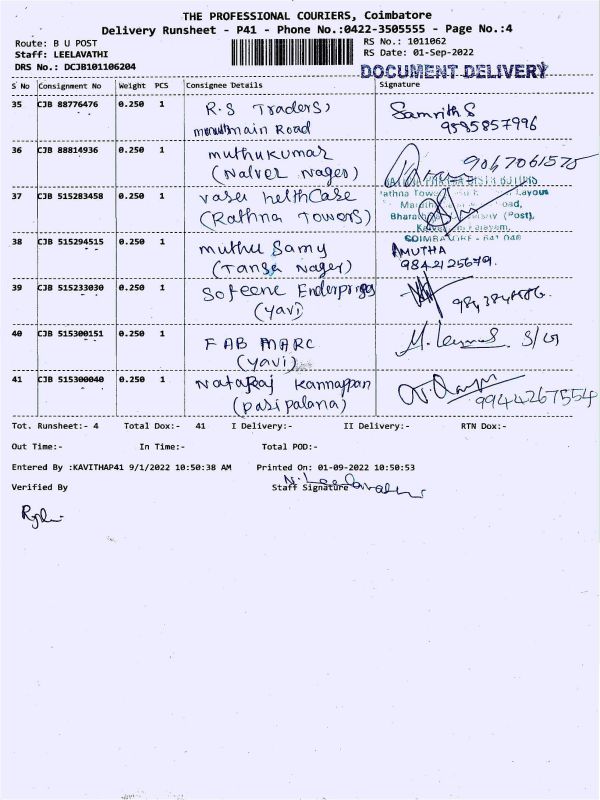 THE PROFESSIONAL COURIERS, Coimbatore
Delivery Runsheet - P41 - Phone No.:0422-3505555 - Page No.:4
Route: B U POST
RS No.: 1011062
Staff: LEELAVATHI
RS Date: 01-Sep-2022
DRS No.: DCJB101106204
DOCUMENT DELIVERY
S No Consignment No Weight PCS Consignee Details Signature
35 CJB 88776476 0.250 1 R.S Traders, Samrith S
main Road 9595857996
36 CJB 88814936 0.250 1 muthukumar 9067061575
(Nalver Nager)
37 CJB 515283458 0.250 1 vaser helthCase
(Rathna Towers)
Layout
(Post),
38 CJB 515294515 0.250 1 muthu Samy AMUTHA
(Tansa Nager) 9842125679.
39 CJB 515233030 0.250 1 Sofeene Enderprises
(yavi)
40 CJB 515300151 0.250 1 FAB MARC
(yavi)
41 CJB 515300040 0.250 1 Nataraj Kannappan
(pasipalana) 9944267554
Tot. Runsheet:- 4 Total Dox:- 41 I Delivery:- II Delivery:- RTN Dox:-
Out Time:- In Time:- Total POD:-
Entered By :KAVITHAP41 9/1/2022 10:50:38 AM Printed On: 01-09-2022 10:50:53
Verified By Staff Signature
N. Leelavathi